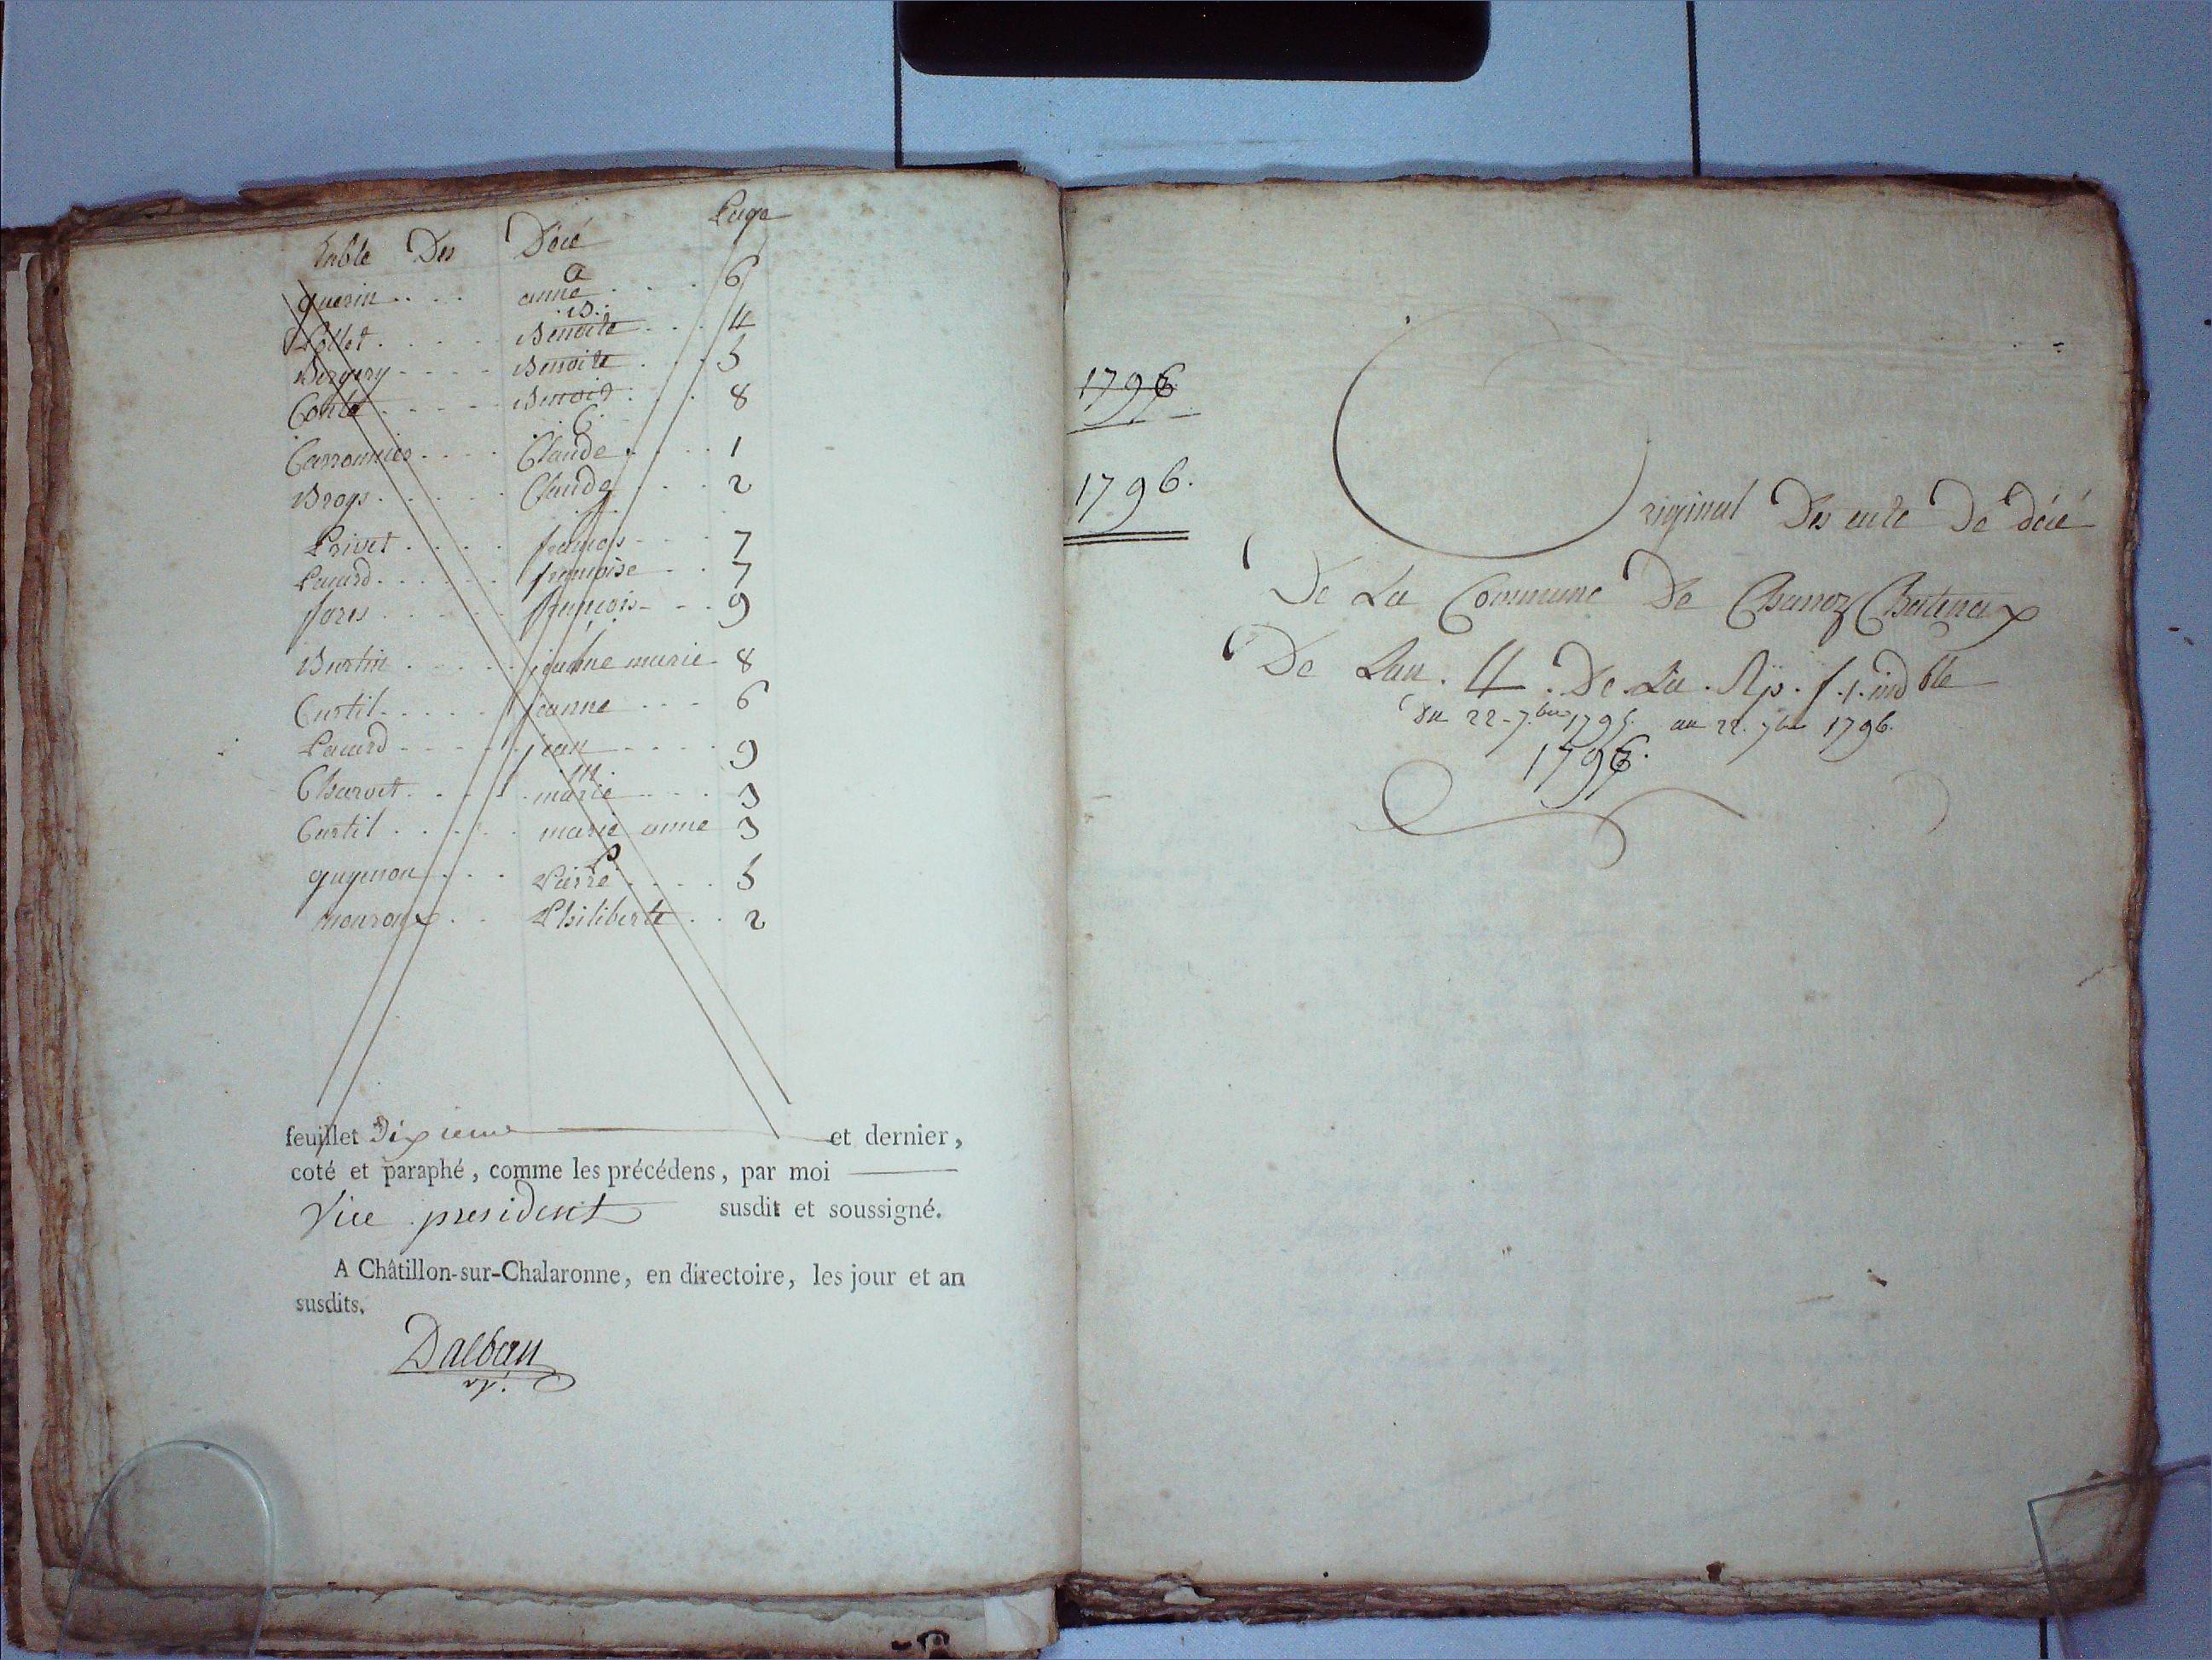 Table Des Décé Page
a
guerin . . . . anne . . . . 6
.B.
Pollet . . . . . Benoite . . . 4
Bergery - - - - Benoite . . . 5
Conte . . . . . Benoit . . . . 8
. . C.
Carronnier . . . . Claude . . . . 1
Broys . . . . . Claude . . . 2
f.
Privet . . . . françois - - - 7
Pacard . . . . . françoise - . . 7
fores . . . . . françois - - . 9
j.
Burtin . . . . . jeanne marie - 8
Curtil - . . . . jeanne . . - - 6
Pacard - - - - - jean - - - - . 9
.m.
Charvet . . . . . marie - . . . 3
Curtil . . . . . . marie anne 3
P
guyenon . . . . Pierre . . . . . 5
mouroux . . . Philiberte . . 2
feuillet Dixieme et dernier,
coté et paraphé, comme les précédens, par moi
Vice president susdit et soussigné.
A Châtillon-sur-Chalaronne, en directoire, les jour et an
susdits.
Dalban
vp.
1796
1796.
Original Des acte De décé
De La Commune De Chanoz Chatenax
De Lan . 4 . De La . Rp . f . 1 . ind ble
Du 22 - 7.bre 1795. au 22. 7bre 1796.
1796.